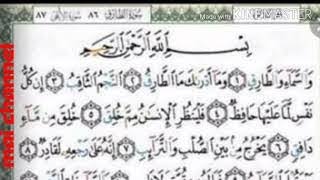 ٨٧ سورة الأعلى ٨٦ سورة الطارق
Made with KINEMASTER
بِسْمِ اللَّهِ الرَّحْمَٰنِ الرَّحِيمِ
وَالسَّمَاءِ وَالطَّارِقِ ١ وَمَا أَدْرَاكَ مَا الطَّارِقُ ٢ النَّجْمُ الثَّاقِبُ ٣ إِن كُلُّ
نَفْسٍ لَّمَّا عَلَيْهَا حَافِظٌ ٤ فَلْيَنظُرِ الْإِنسَانُ مِمَّ خُلِقَ ٥ خُلِقَ مِن مَّاءٍ
دَافِقٍ ٦ يَخْرُجُ مِن بَيْنِ الصُّلْبِ وَالتَّرَائِبِ ٧ إِنَّهُ عَلَىٰ رَجْعِهِ لَقَادِرٌ ٨